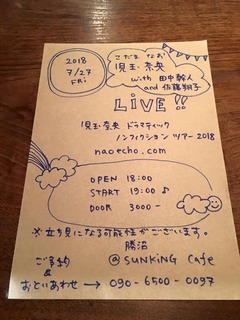 2018
7/27
Fri
こだま なお
児玉 奈央
with 田中 幹人
and 佐藤翔子
LIVE!!
児玉 奈央 ドラマティック
ノンフィクション ツアー 2018
naoecho.com
OPEN 18:00
START 19:00 ♪
DOOR 3000-
※立ち見になる可能性がございます。
勝沼
@SUNKiNG Cafe
ご予約
&
おといあわせ → 090-6500-0097